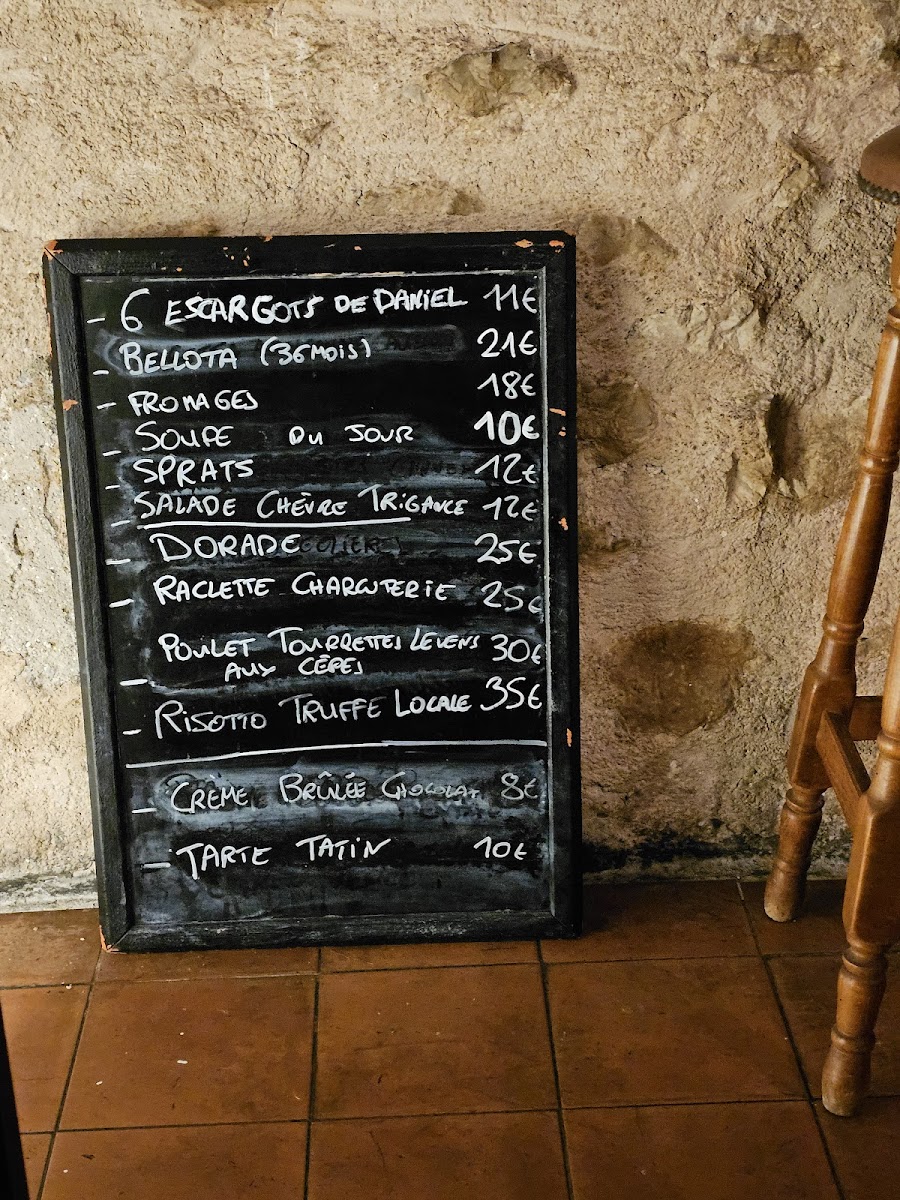 - 6 ESCARGOTS DE DANIEL 11€
- BELLOTA (36 MOIS) 21€
- FROMAGES 18€
- SOUPE DU JOUR 10€
- SPRATS 12€
- SALADE CHÈVRE TRIGANCE 12€
- DORADE 25€
- RACLETTE CHARCUTERIE 25€
POULET TOURRETTES LEVENS 30€
- AUX CÈPES
- RISOTTO TRUFFE LOCALE 35€
- CRÈME BRÛLÉE CHOCOLAT 8€
- TARTE TATIN 10€